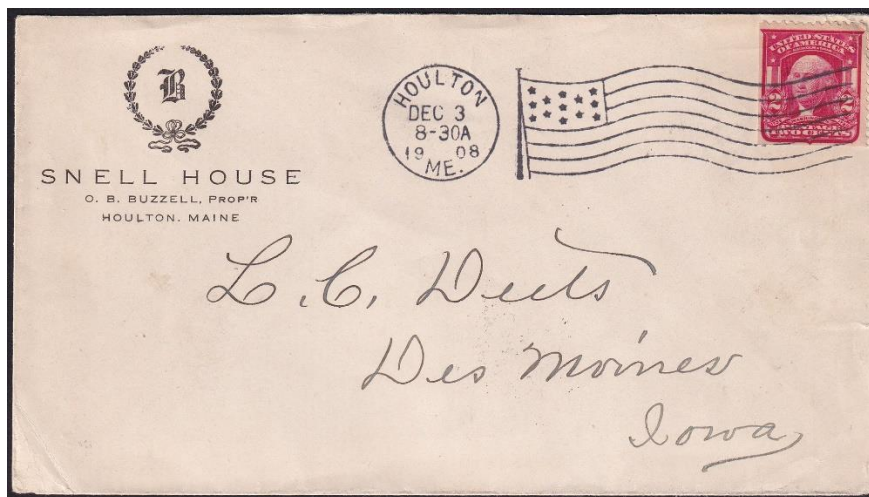 B
SNELL HOUSE
O. B. BUZZELL, PROP'R
HOULTON, MAINE
HOULTON
DEC 3
8-30A
19 08
ME.
UNITED STATES
OF AMERICA
2 2
POSTAGE
TWO CENTS
L. C. Deets
Des Moines
Iowa